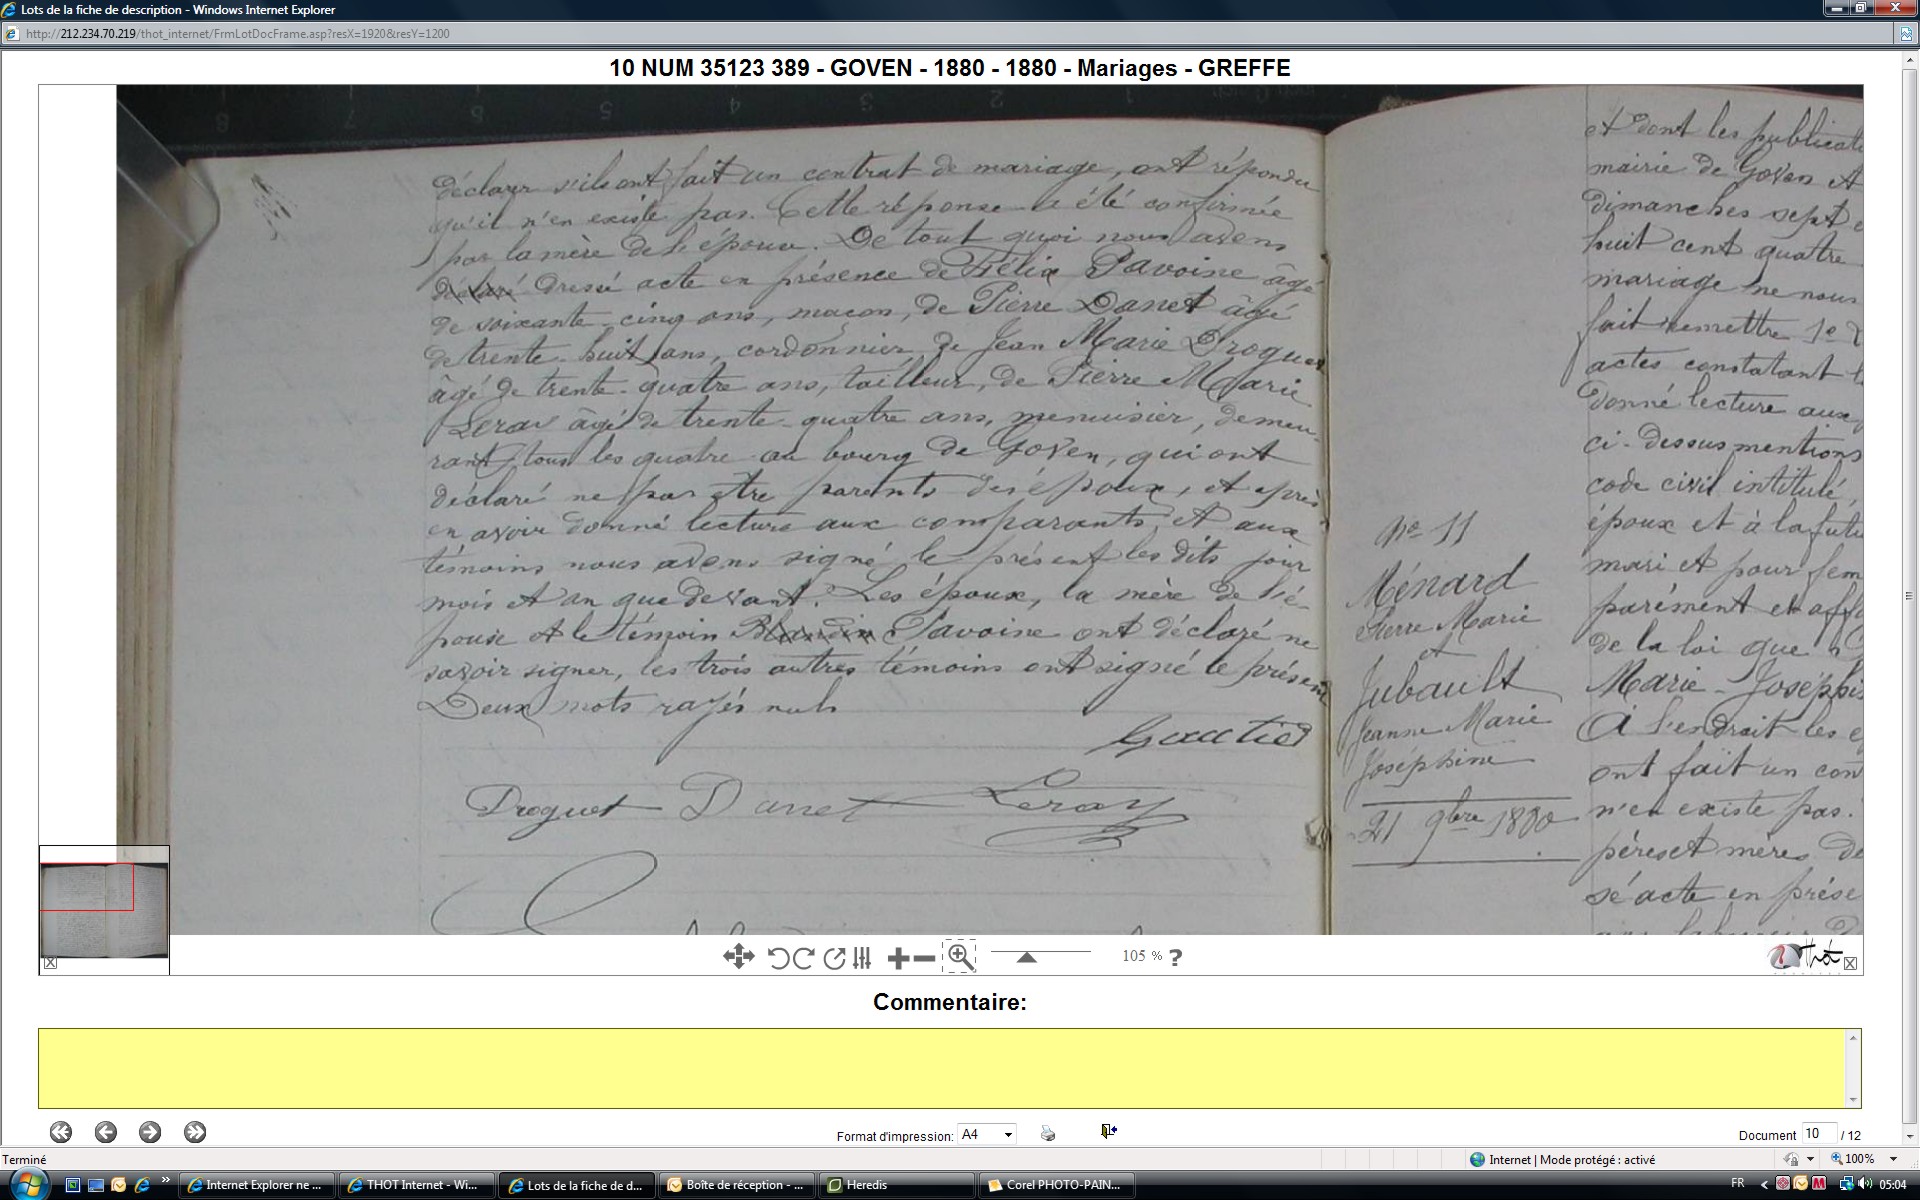 Lots de la fiche de description - Windows Internet Explorer
http://212.234.70.219/thot_internet/FrmLotDocFrame.asp?resX=1920&resY=1200
10 NUM 35123 389 - GOVEN - 1880 - 1880 - Mariages - GREFFE
8 7 6 5 4 3 2 1
déclarer s'ils ont fait un contrat de mariage, ont répondu
qu'il n'en existe pas. Cette réponse a été confirmée
par la mère de l'épouse. De tout quoi nous avons
déclaré dressé acte en présence de Félix Pavoine âgé
de soixante-cinq ans, maçon, de Pierre Danet âgé
de trente-huit ans, cordonnier, de Jean Marie Droguet
âgé de trente-quatre ans, tailleur, de Pierre Marie
Leray âgé de trente-quatre ans, menuisier, demeu-
rant tous les quatre au bourg de Goven, qui ont
déclaré ne pas être parents des époux, et après
en avoir donné lecture aux comparants, et aux
témoins nous avons signé le présent les dits jour
mois et an que devant. Les époux, la mère de l'é-
pouse et le témoin Blandin Pavoine ont déclaré ne
savoir signer, les trois autres témoins ont signé le présent
Deux mots rayés nuls
Gautier
Droguet Danet Leray
No 11
Ménard
Pierre Marie
et
Jubault
Jeanne Marie
Joséphine
21 9bre 1880
et dont les publicati
mairie de Goven et
dimanches sept e
huit cent quatre
mariage ne nous
fait remettre 1o
actes constatant l
donné lecture aux
ci-dessus mention
code civil intitulé,
époux et à la futu
mari et pour fem
parément et aff
de la loi que
Marie-Joséphi
À l'endroit les é
ont fait un con
n'en existe pas.
pères et mères de
sé acte en prése
105 % ?
Thot
Commentaire:
Format d'impression: A4
Document 10 / 12
Terminé
Internet | Mode protégé : activé
100%
Internet Explorer ne ...
THOT Internet - Wi...
Lots de la fiche de d...
Boîte de réception - ...
Heredis
Corel PHOTO-PAIN...
FR
05:04